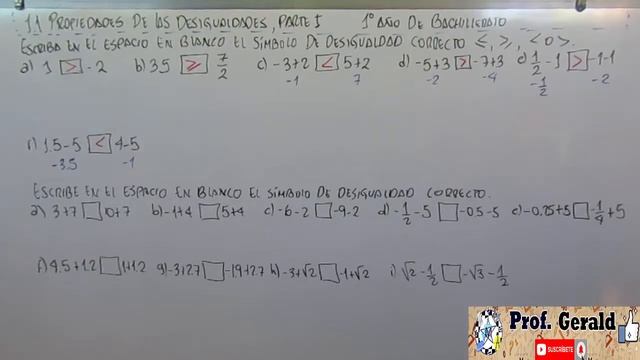 1.1 PROPIEDADES DE LAS DESIGUALDADES, PARTE I 1° AÑO DE BACHILLERATO
ESCRIBA EN EL ESPACIO EN BLANCO EL SÍMBOLO DE DESIGUALDAD CORRECTO ≤, ≥, < O >.
a) 1 > -2 b) 3.5 ≥ 7/2 c) -3+2 < 5+2 d) -5+3 > -7+3 e) 1/2 -1 > -1-1
-1 7 -2 -4 -1/2 -2
1.5-5 < 4-5
-3.5 -1
ESCRIBE EN EL ESPACIO EN BLANCO EL SÍMBOLO DE DESIGUALDAD CORRECTO.
a) 3+7 □ 0+7 b) -1+4 □ 5+4 c) -6-2 □ -9-2 d) -1/2 -5 □ -0.5-5 e) -0.25+5 □ -1/4 +5
f) 4.5+1.2 □ 1+1.2 g) -3+2.7 □ -19+2.7 h) -3+√2 □ -1+√2 i) √2 - 1/2 □ -√3 - 1/2
Prof. Gerald
SUSCRÍBETE